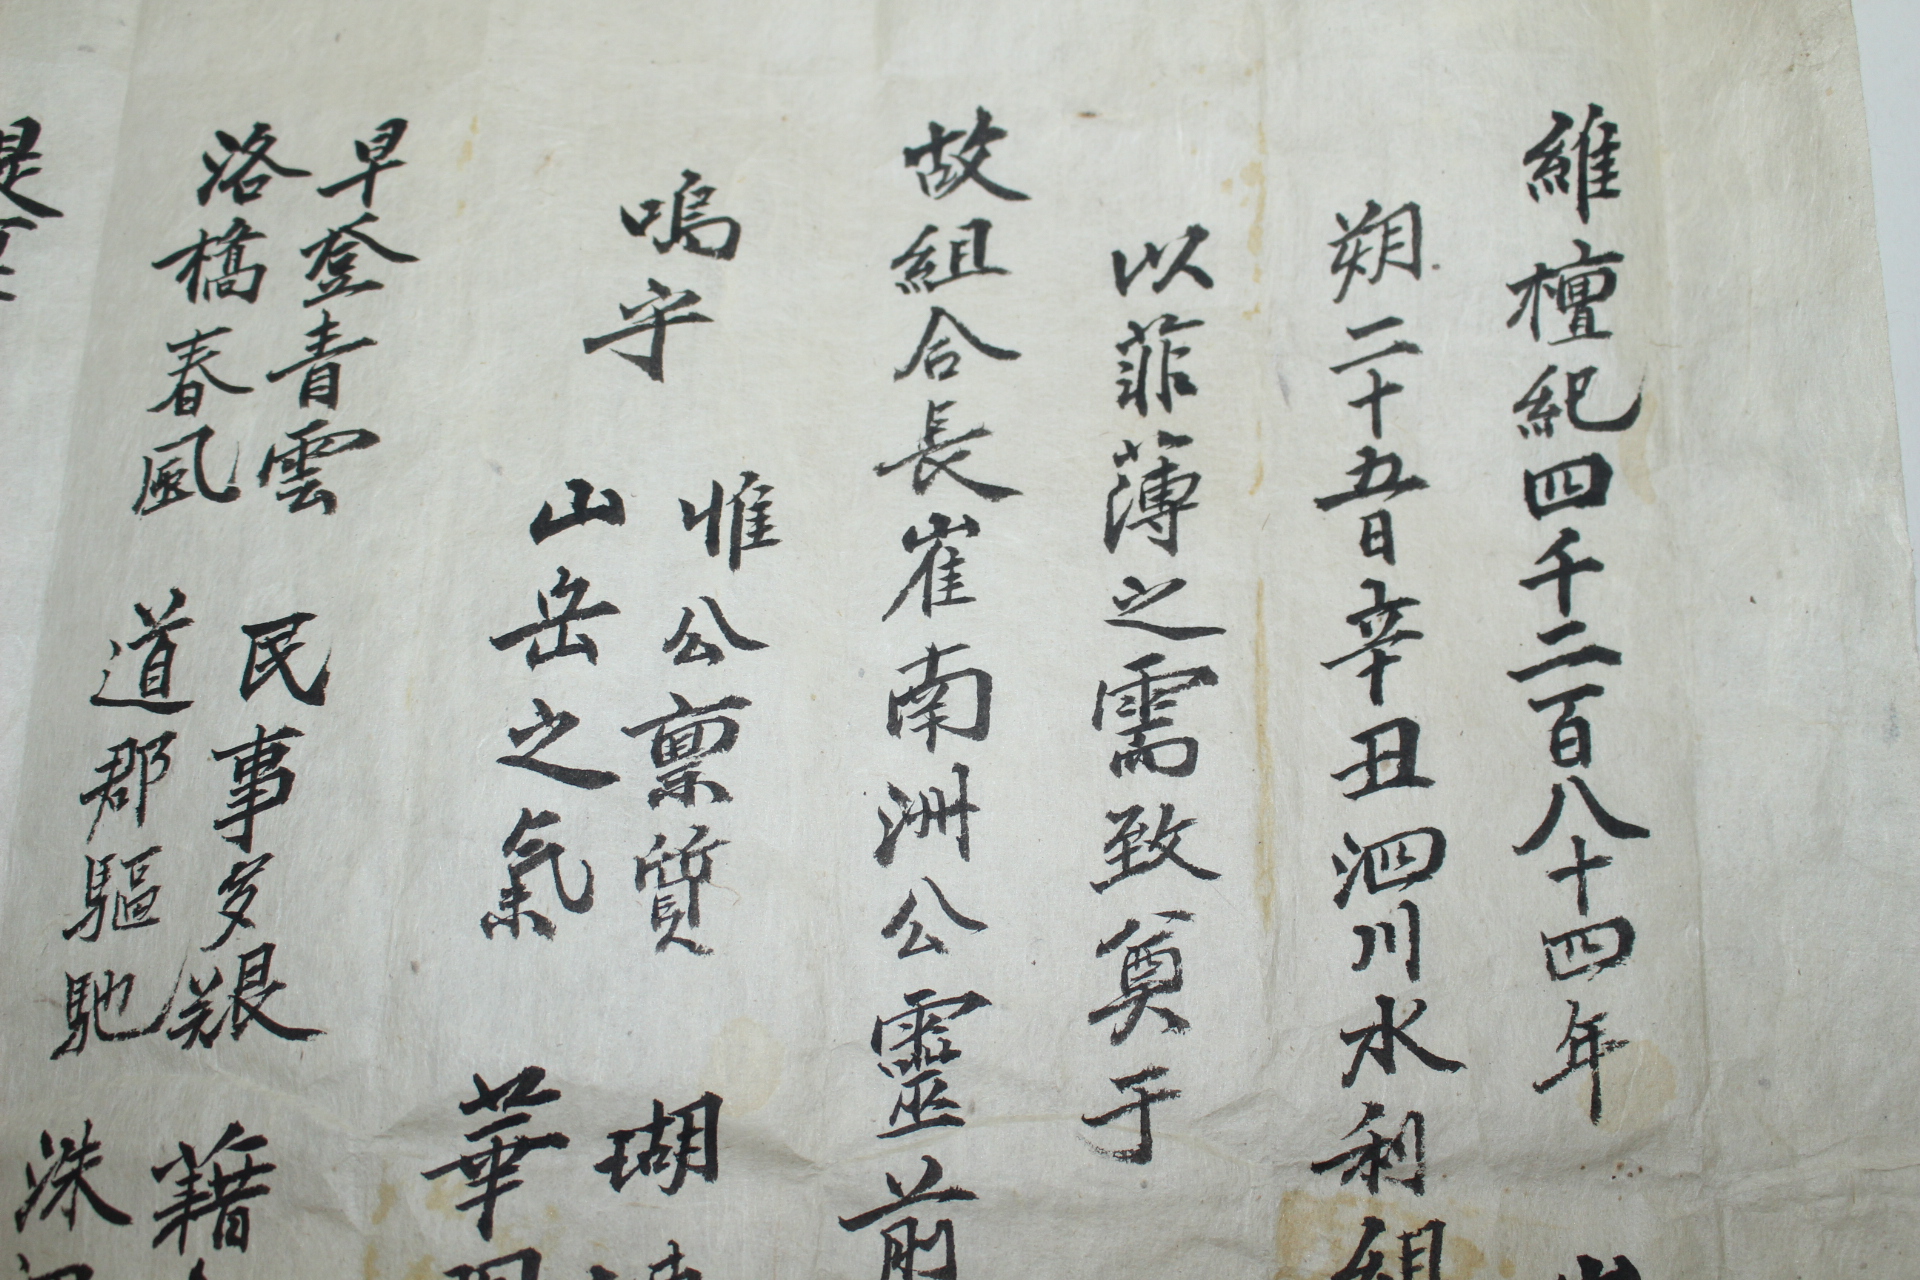 維檀紀四千二百八十四年
朔二十五日辛丑泗川水利組
以菲薄之需致奠于
故組合長崔南洲公靈前
嗚乎
惟公禀質 瑚
山岳之氣 華
早登青雲 民事多艱 藉
洛橋春風 道郡驅馳 洙